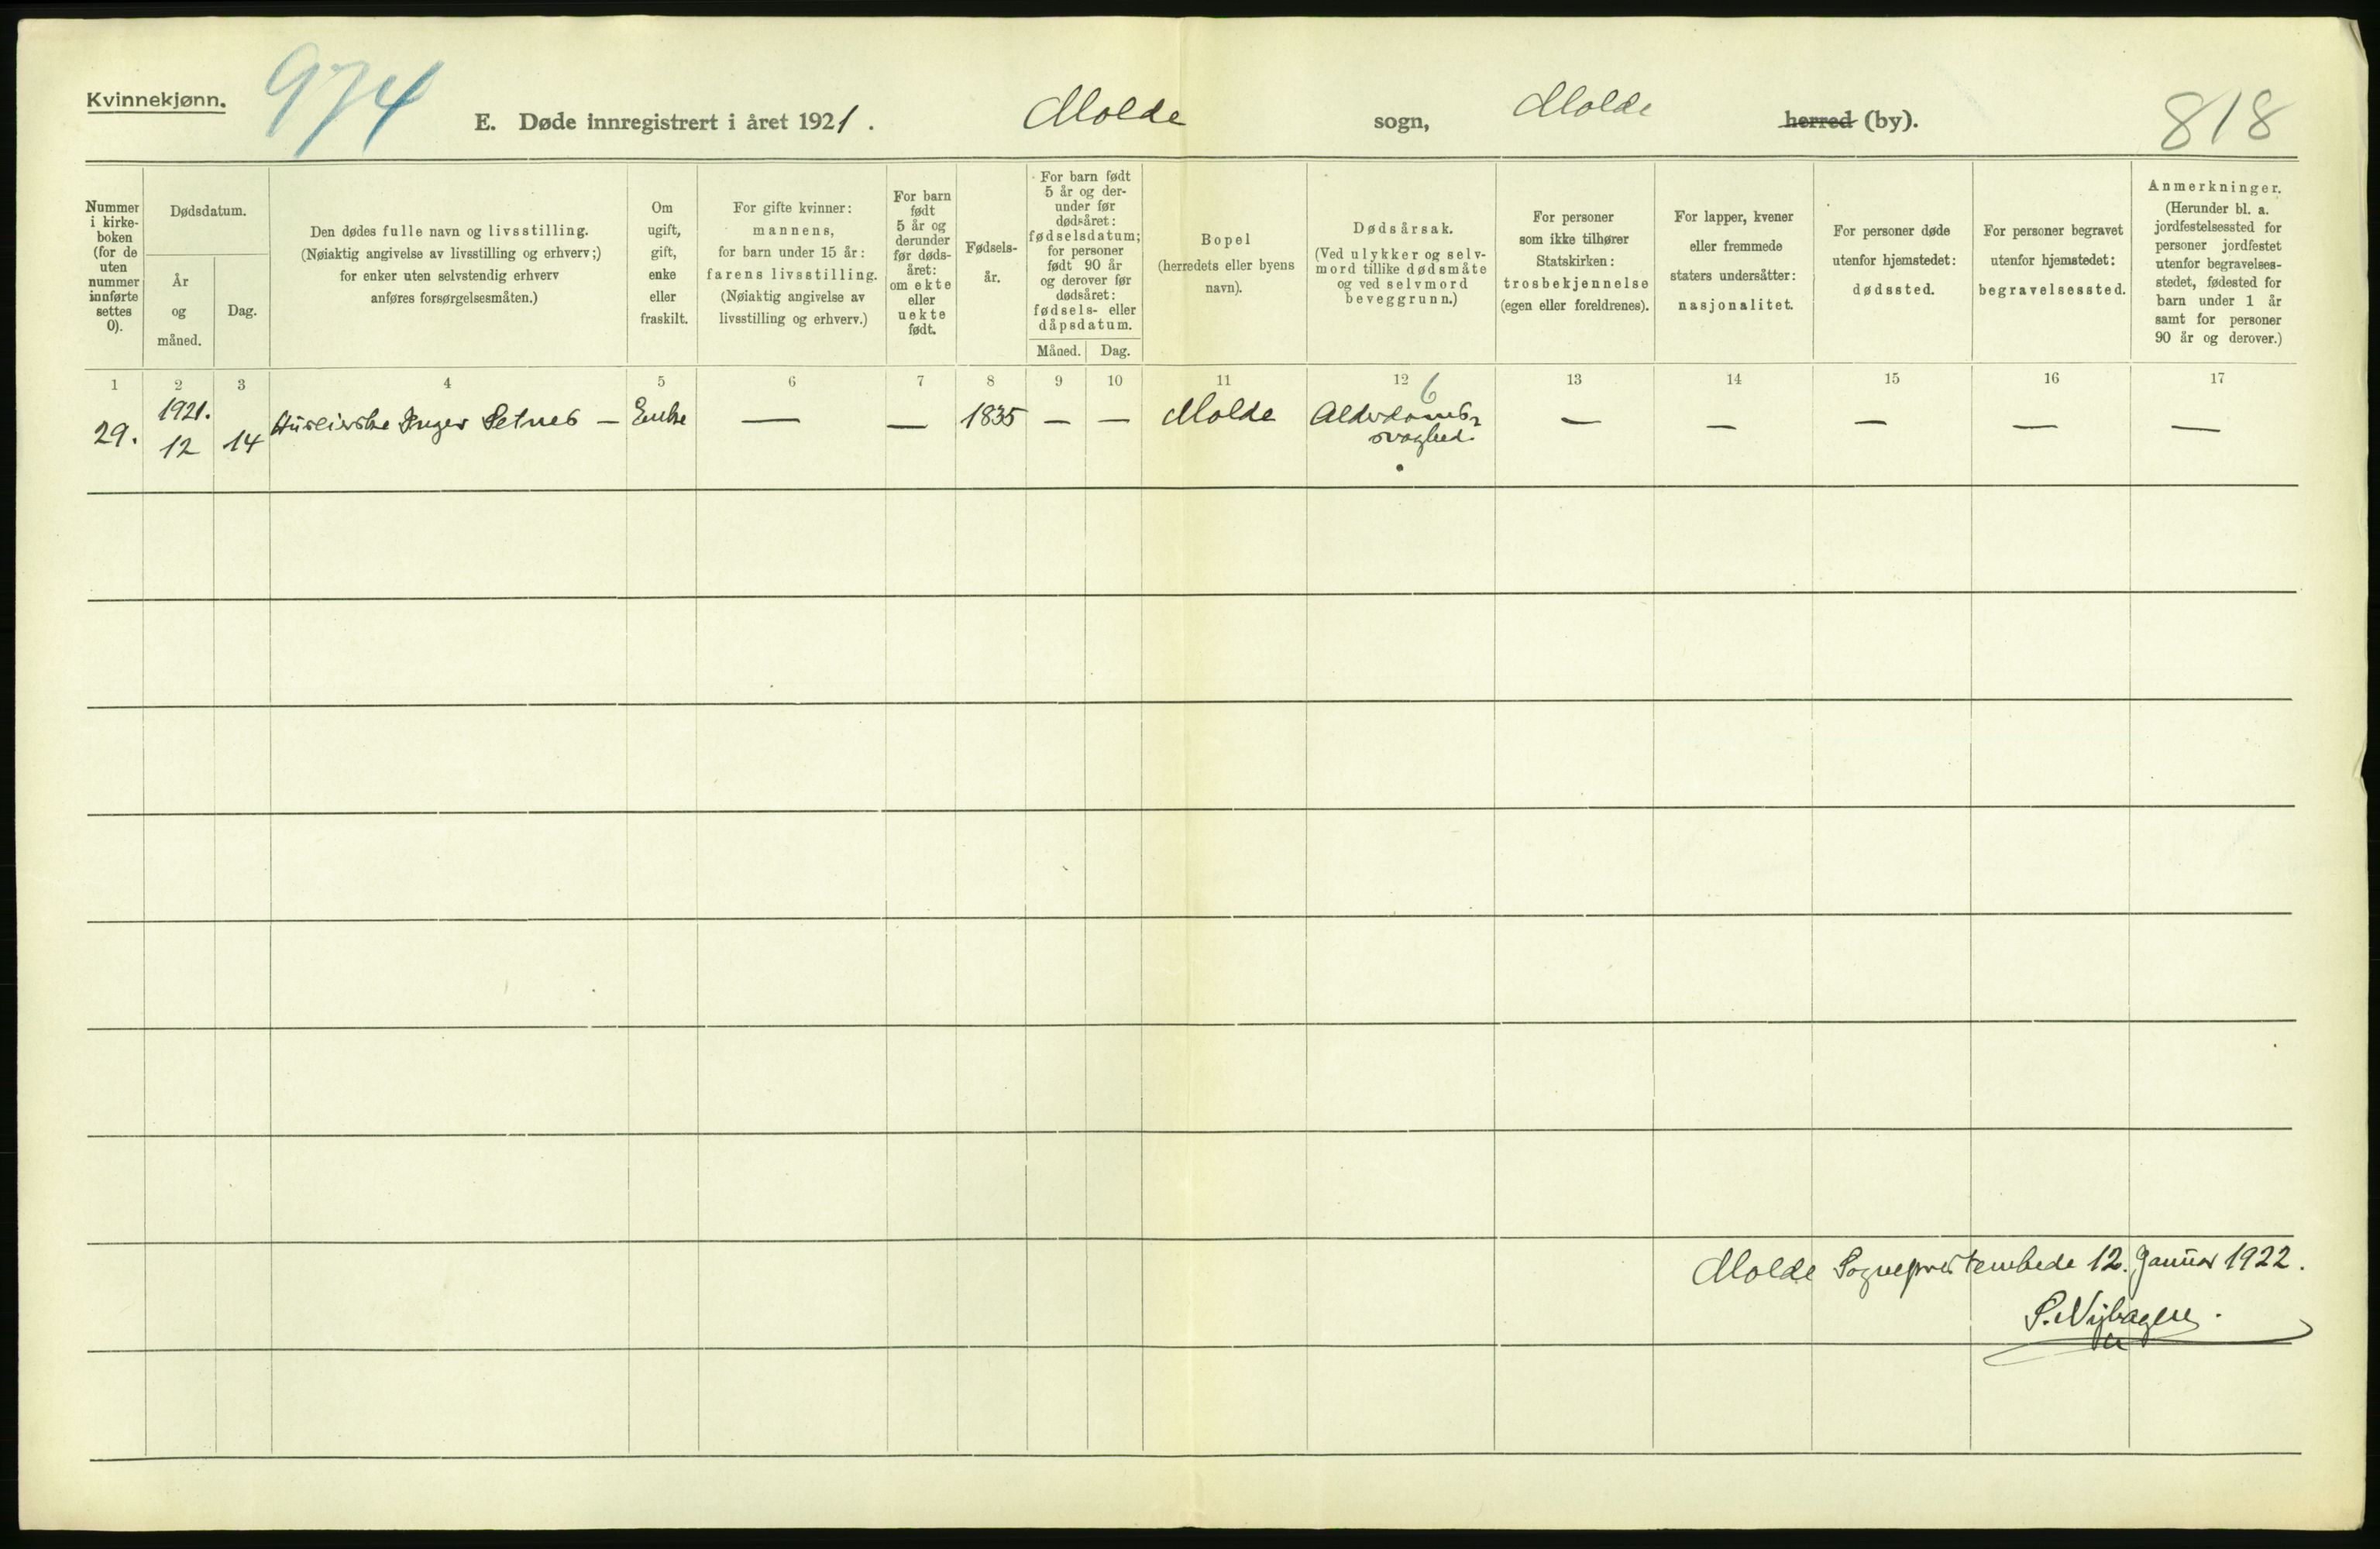 Kvinnekjønn.
974
E. Døde innregistrert i året 1921.
Molde sogn,
Molde herred (by).
818
Nummer
i kirke-
boken
(for de
uten
nummer
innførte
settes
0).
Dødsdatum.
År
og
måned.
Dag.
Den dødes fulle navn og livsstilling.
(Nøiaktig angivelse av livsstilling og erhverv;)
for enker uten selvstendig erhverv
anføres forsørgelsesmåten.)
Om
ugift,
gift,
enke
eller
fraskilt.
For gifte kvinner:
mannens,
for barn under 15 år:
farens livsstilling.
(Nøiaktig angivelse av
livsstilling og erhverv.)
For barn
født
5 år og
derunder
før døds-
året:
om ekte
eller
uekte
født.
Fødsels-
år.
For barn født
5 år og der-
under før
dødsåret:
fødselsdatum;
for personer
født 90 år
og derover før
dødsåret:
fødsels- eller
dåpsdatum.
Måned. Dag.
Bopel
(herredets eller byens
navn).
Dødsårsak.
(Ved ulykker og selv-
mord tillike dødsmåte
og ved selvmord
beveggrunn.)
For personer
som ikke tilhører
Statskirken:
trosbekjennelse
(egen eller foreldrenes).
For lapper, kvener
eller fremmede
staters undersåtter:
nasjonalitet.
For personer døde
utenfor hjemstedet:
dødssted.
For personer begravet
utenfor hjemstedet:
begravelsessted.
Anmerkninger.
(Herunder bl. a.
jordfestelsessted for
personer jordfestet
utenfor begravelses-
stedet, fødested for
barn under 1 år
samt for personer
90 år og derover.)
1 2 3 4 5 6 7 8 9 10 11 12 13 14 15 16 17
6
29. 1921. 12 14 Huseierske Inger Setnes — Enke — — 1835 — — Molde Alderdoms-
svaghed. — — — — —
Molde Sogneprestembede 12. Januar 1922.